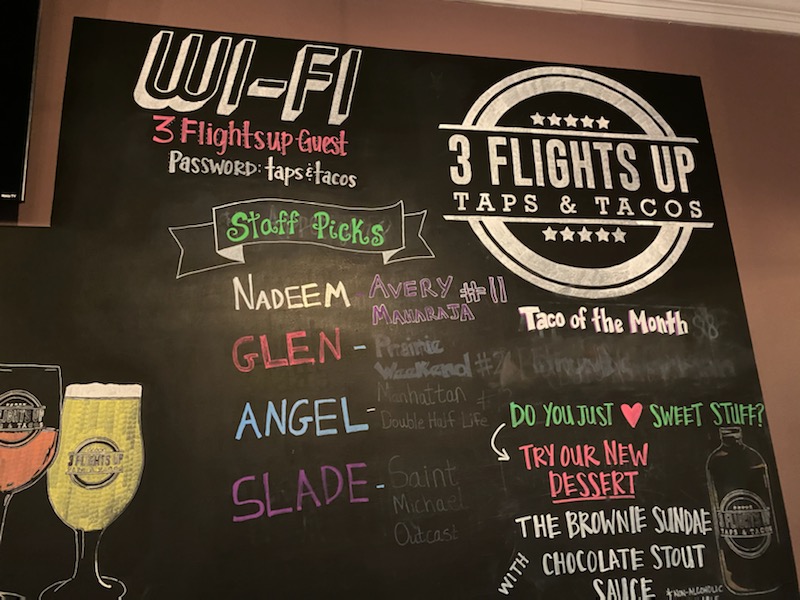 WI-FI
3 Flightsup Guest
PASSWORD: taps & tacos
3 FLIGHTS UP
TAPS & TACOS
Staff Picks
NADEEM - AVERY #11
MAHARAJA
GLEN - Prairie
Weekend #2
ANGEL - Manhattan #
Double Half Life
SLADE - Saint
Michael
Outcast
Taco of the Month $8
DO YOU JUST ♥ SWEET STUFF?
TRY OUR NEW
DESSERT
THE BROWNIE SUNDAE
WITH CHOCOLATE STOUT
SAUCE
*NON-ALCOHOLIC
FLIGHTS UP
& TACOS
3 FLIGHTS UP
3 FLIGHTS UP
TAPS & TACOS